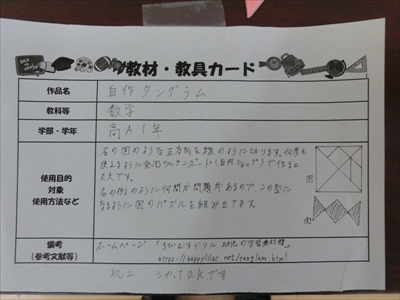 教材・教具カード
作品名
自作タングラム
教科等
数学
学部・学年
高A1年
使用目的
対象
使用方法など
右の図のような正方形を
のように切ります。何度も
使えるように
で作ると
丈夫です。
右の例のように何問か問題があるので、この型に
なるように図のパズルを組み立てます。
図
備考
(参考文献等)
ホームページ「ちびむすドリル 幼児の学習素材館」
https://happylilac.net/tanglam.html
さわってOKです